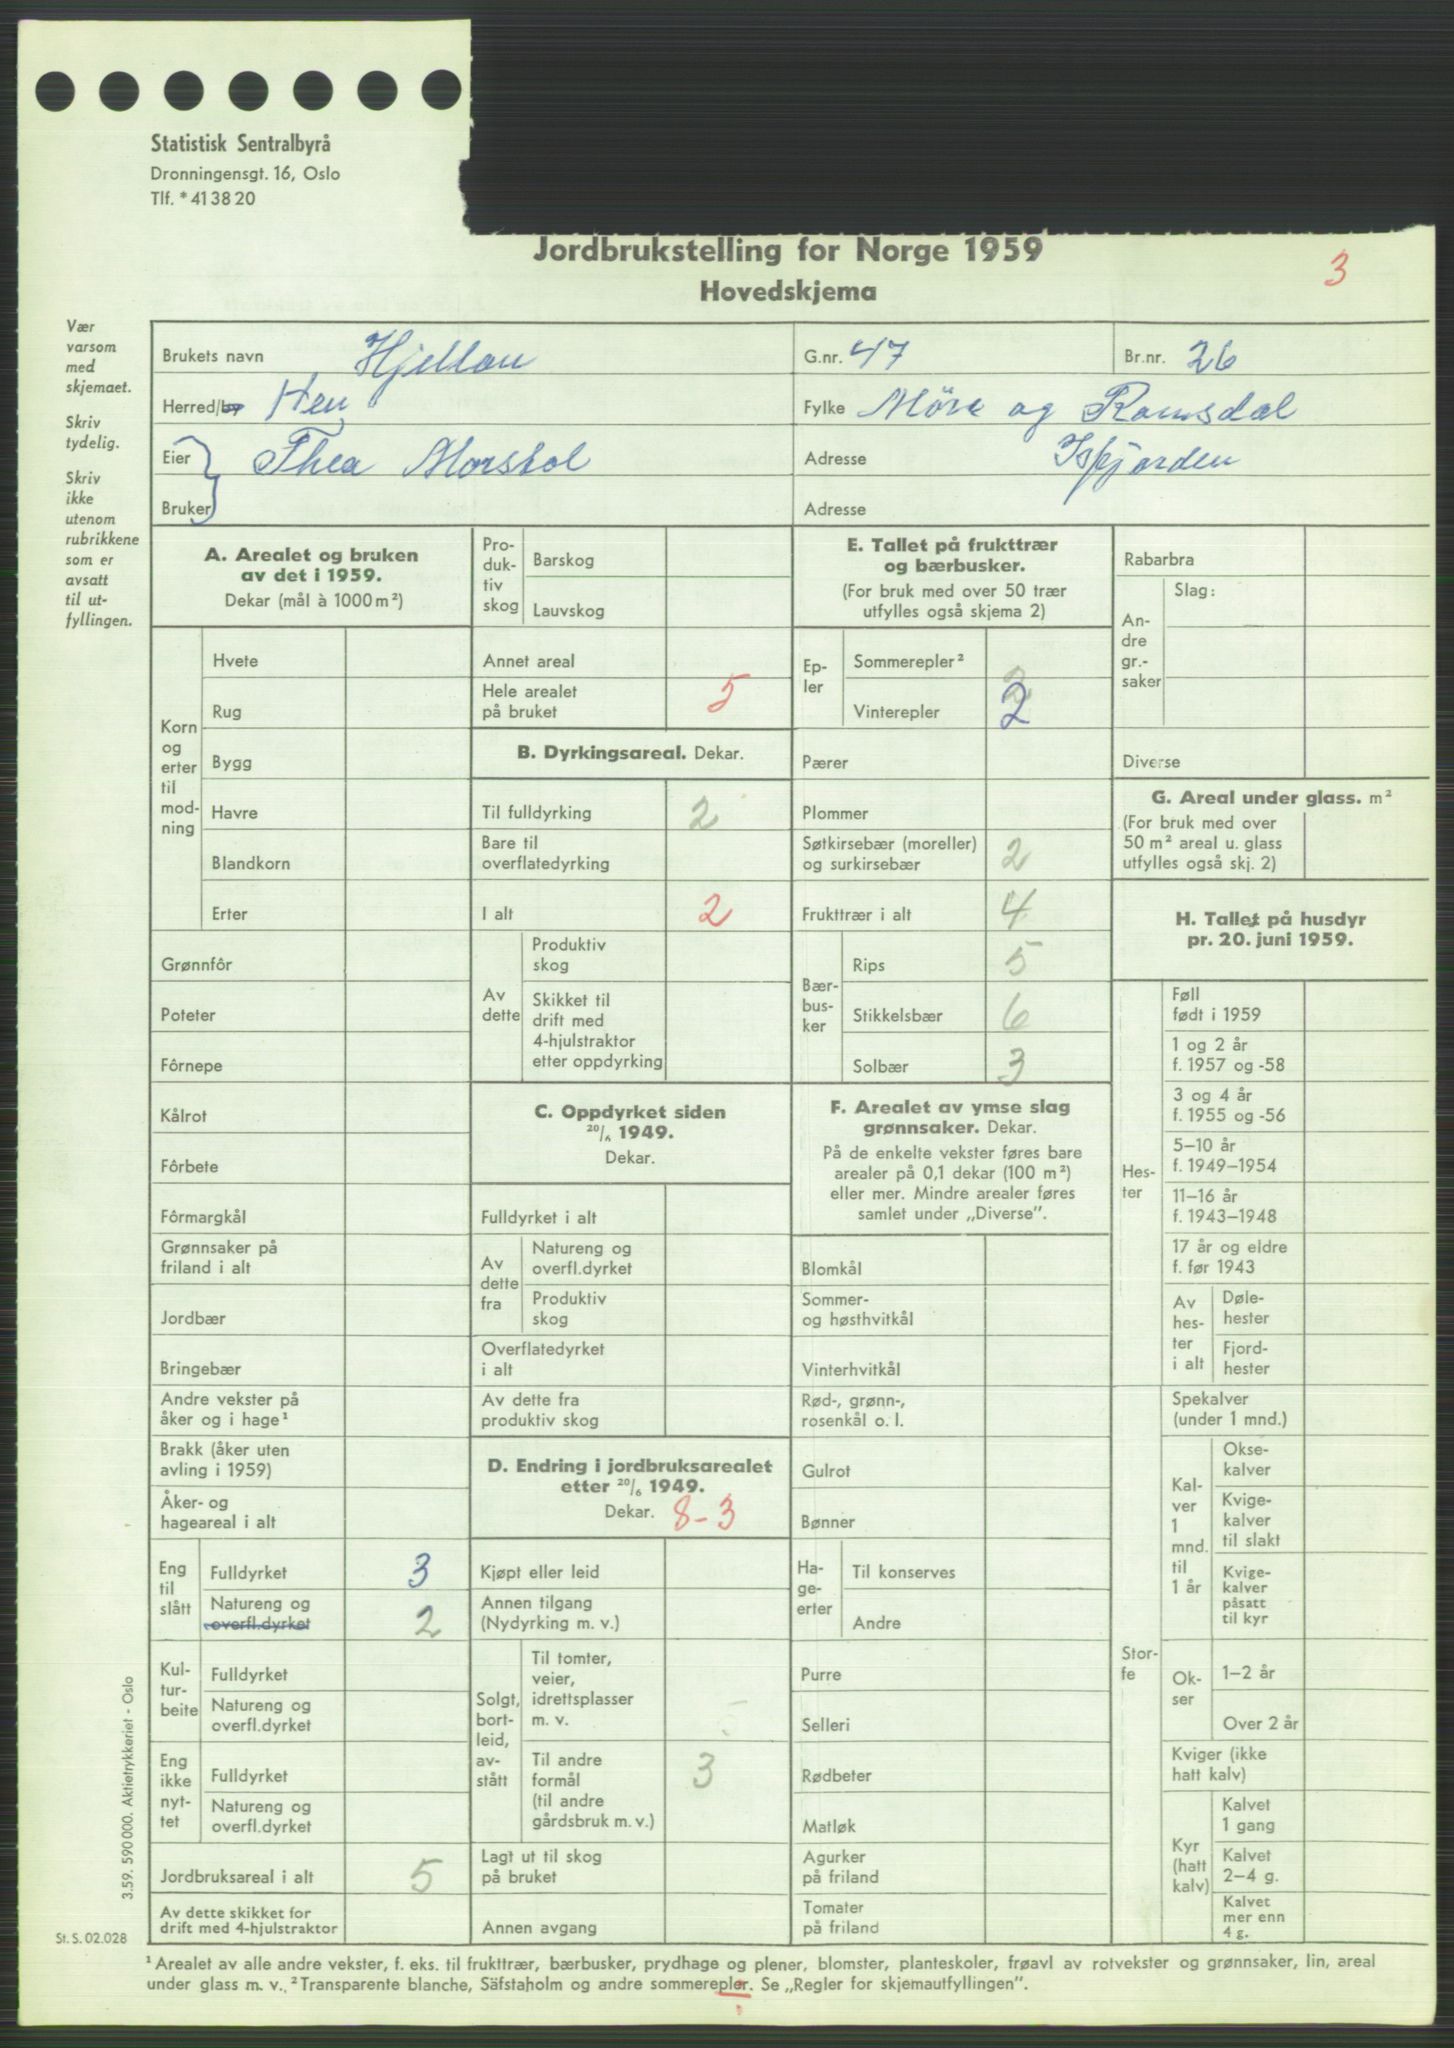 Statistisk Sentralbyrå
Dronningensgt. 16, Oslo
Tlf. * 41 38 20
Jordbrukstelling for Norge 1959
Hovedskjema
3
Vær
varsom
med
skjemaet.
Skriv
tydelig.
Skriv
ikke
utenom
rubrikkene
som er
avsatt
til ut-
fyllingen.
Brukets navn Hjellan G.nr. 47 Br.nr. 26
Herred/by Hen Fylke Möre og Romsdal
Eier Thea Morstol Adresse Isfjorden
Bruker Adresse
A. Arealet og bruken
av det i 1959.
Dekar (mål à 1000 m²)
Korn
og
erter
til
mod-
ning
Hvete
Rug
Bygg
Havre
Blandkorn
Erter
Grønnfôr
Poteter
Fôrnepe
Kålrot
Fôrbete
Fôrmargkål
Grønnsaker på
friland i alt
Jordbær
Bringebær
Andre vekster på
åker og i hage¹
Brakk (åker uten
avling i 1959)
Åker- og
hageareal i alt
Eng
til
slått
Fulldyrket 3
Natureng og
overfl.dyrket 2
Kul-
tur-
beite
Fulldyrket
Natureng og
overfl.dyrket
Eng
ikke
nyt-
tet
Fulldyrket
Natureng og
overfl.dyrket
Jordbruksareal i alt 5
Av dette skikket for
drift med 4-hjulstraktor
Pro-
duk-
tiv
skog
Barskog
Lauvskog
Annet areal
Hele arealet
på bruket 5
B. Dyrkingsareal. Dekar.
Til fulldyrking 2
Bare til
overflatedyrking
I alt 2
Av
dette
Produktiv
skog
Skikket til
drift med
4-hjulstraktor
etter oppdyrking
C. Oppdyrket siden
20/6 1949.
Dekar.
Fulldyrket i alt
Av
dette
fra
Natureng og
overfl.dyrket
Produktiv
skog
Overflatedyrket
i alt
Av dette fra
produktiv skog
D. Endring i jordbruksarealet
etter 20/6 1949.
Dekar. 8-3
Kjøpt eller leid
Annen tilgang
(Nydyrking m. v.)
Solgt,
bort-
leid,
av-
stått
Til tomter,
veier,
idrettsplasser
m. v.
Til andre
formål
(til andre
gårdsbruk m. v.) 3
Lagt ut til skog
på bruket
Annen avgang
E. Tallet på frukttrær
og bærbusker.
(For bruk med over 50 trær
utfylles også skjema 2)
Ep-
ler
Sommerepler²
2
Vinterepler 2
Pærer
Plommer
Søtkirsebær (moreller)
og surkirsebær 2
Frukttrær i alt 4
Bær-
bus-
ker
Rips 5
Stikkelsbær 6
Solbær 3
F. Arealet av ymse slag
grønnsaker. Dekar.
På de enkelte vekster føres bare
arealer på 0,1 dekar (100 m²)
eller mer. Mindre arealer føres
samlet under „Diverse".
Blomkål
Sommer-
og høsthvitkål
Vinterhvitkål
Rød-, grønn-,
rosenkål o. l.
Gulrot
Bønner
Ha-
ge-
erter
Til konserves
Andre
Purre
Selleri
Rødbeter
Matløk
Agurker
på friland
Tomater
på friland
Rabarbra
An-
dre
gr.-
saker
Slag:
Diverse
G. Areal under glass. m²
(For bruk med over
50 m² areal u. glass
utfylles også skj. 2)
H. Tallet på husdyr
pr. 20. juni 1959.
Hes-
ter
Føll
født i 1959
1 og 2 år
f. 1957 og -58
3 og 4 år
f. 1955 og -56
5–10 år
f. 1949–1954
11–16 år
f. 1943–1948
17 år og eldre
f. før 1943
Av
hes-
ter
i alt
Døle-
hester
Fjord-
hester
Stor-
fe
Spekalver
(under 1 mnd.)
Kal-
ver
1
mnd.
til
1 år
Okse-
kalver
Kvige-
kalver
til slakt
Kvige-
kalver
påsatt
til kyr
Ok-
ser
1–2 år
Over 2 år
Kviger (ikke
hatt kalv)
Kyr
(hatt
kalv)
Kalvet
1 gang
Kalvet
2–4 g.
Kalvet
mer enn
4 g.
3.59. 590 000. Aktietrykkeriet - Oslo
St. S. 02.028
¹ Arealet av alle andre vekster, f. eks. til frukttrær, bærbusker, prydhage og plener, blomster, planteskoler, frøavl av rotvekster og grønnsaker, lin, areal
under glass m. v. ² Transparente blanche, Säfstaholm og andre sommerepler. Se „Regler for skjemautfyllingen".